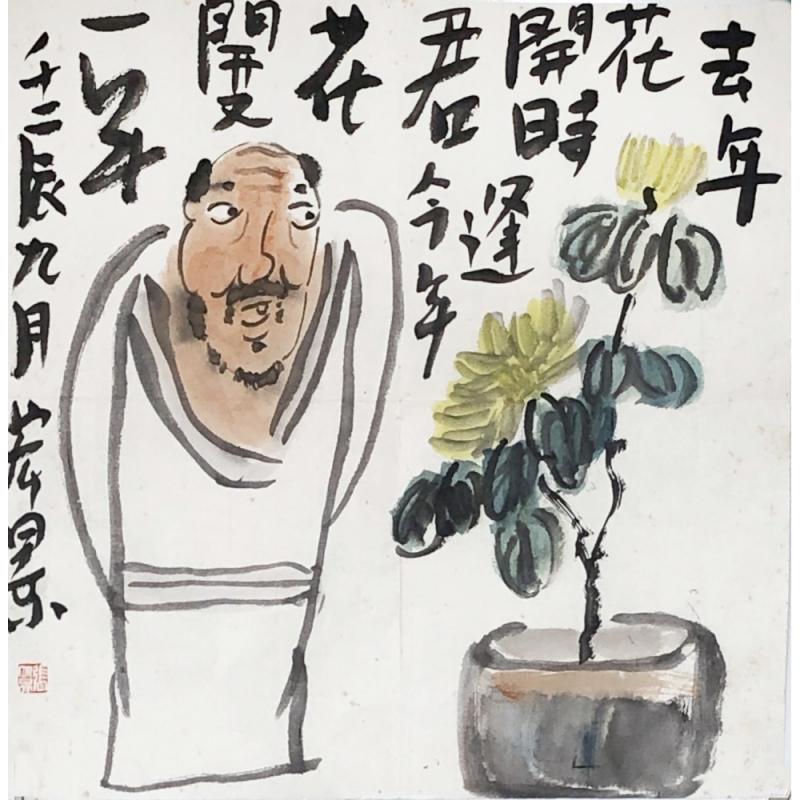 去年
花
開時逢
君今年
花
開又
一年
壬辰九月